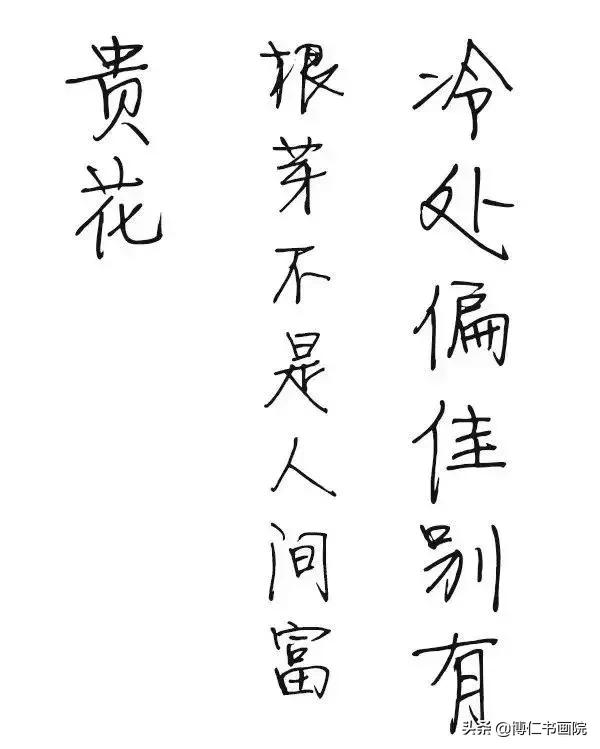 冷处偏佳别有
根芽不是人间富
贵花
头条@博仁书画院